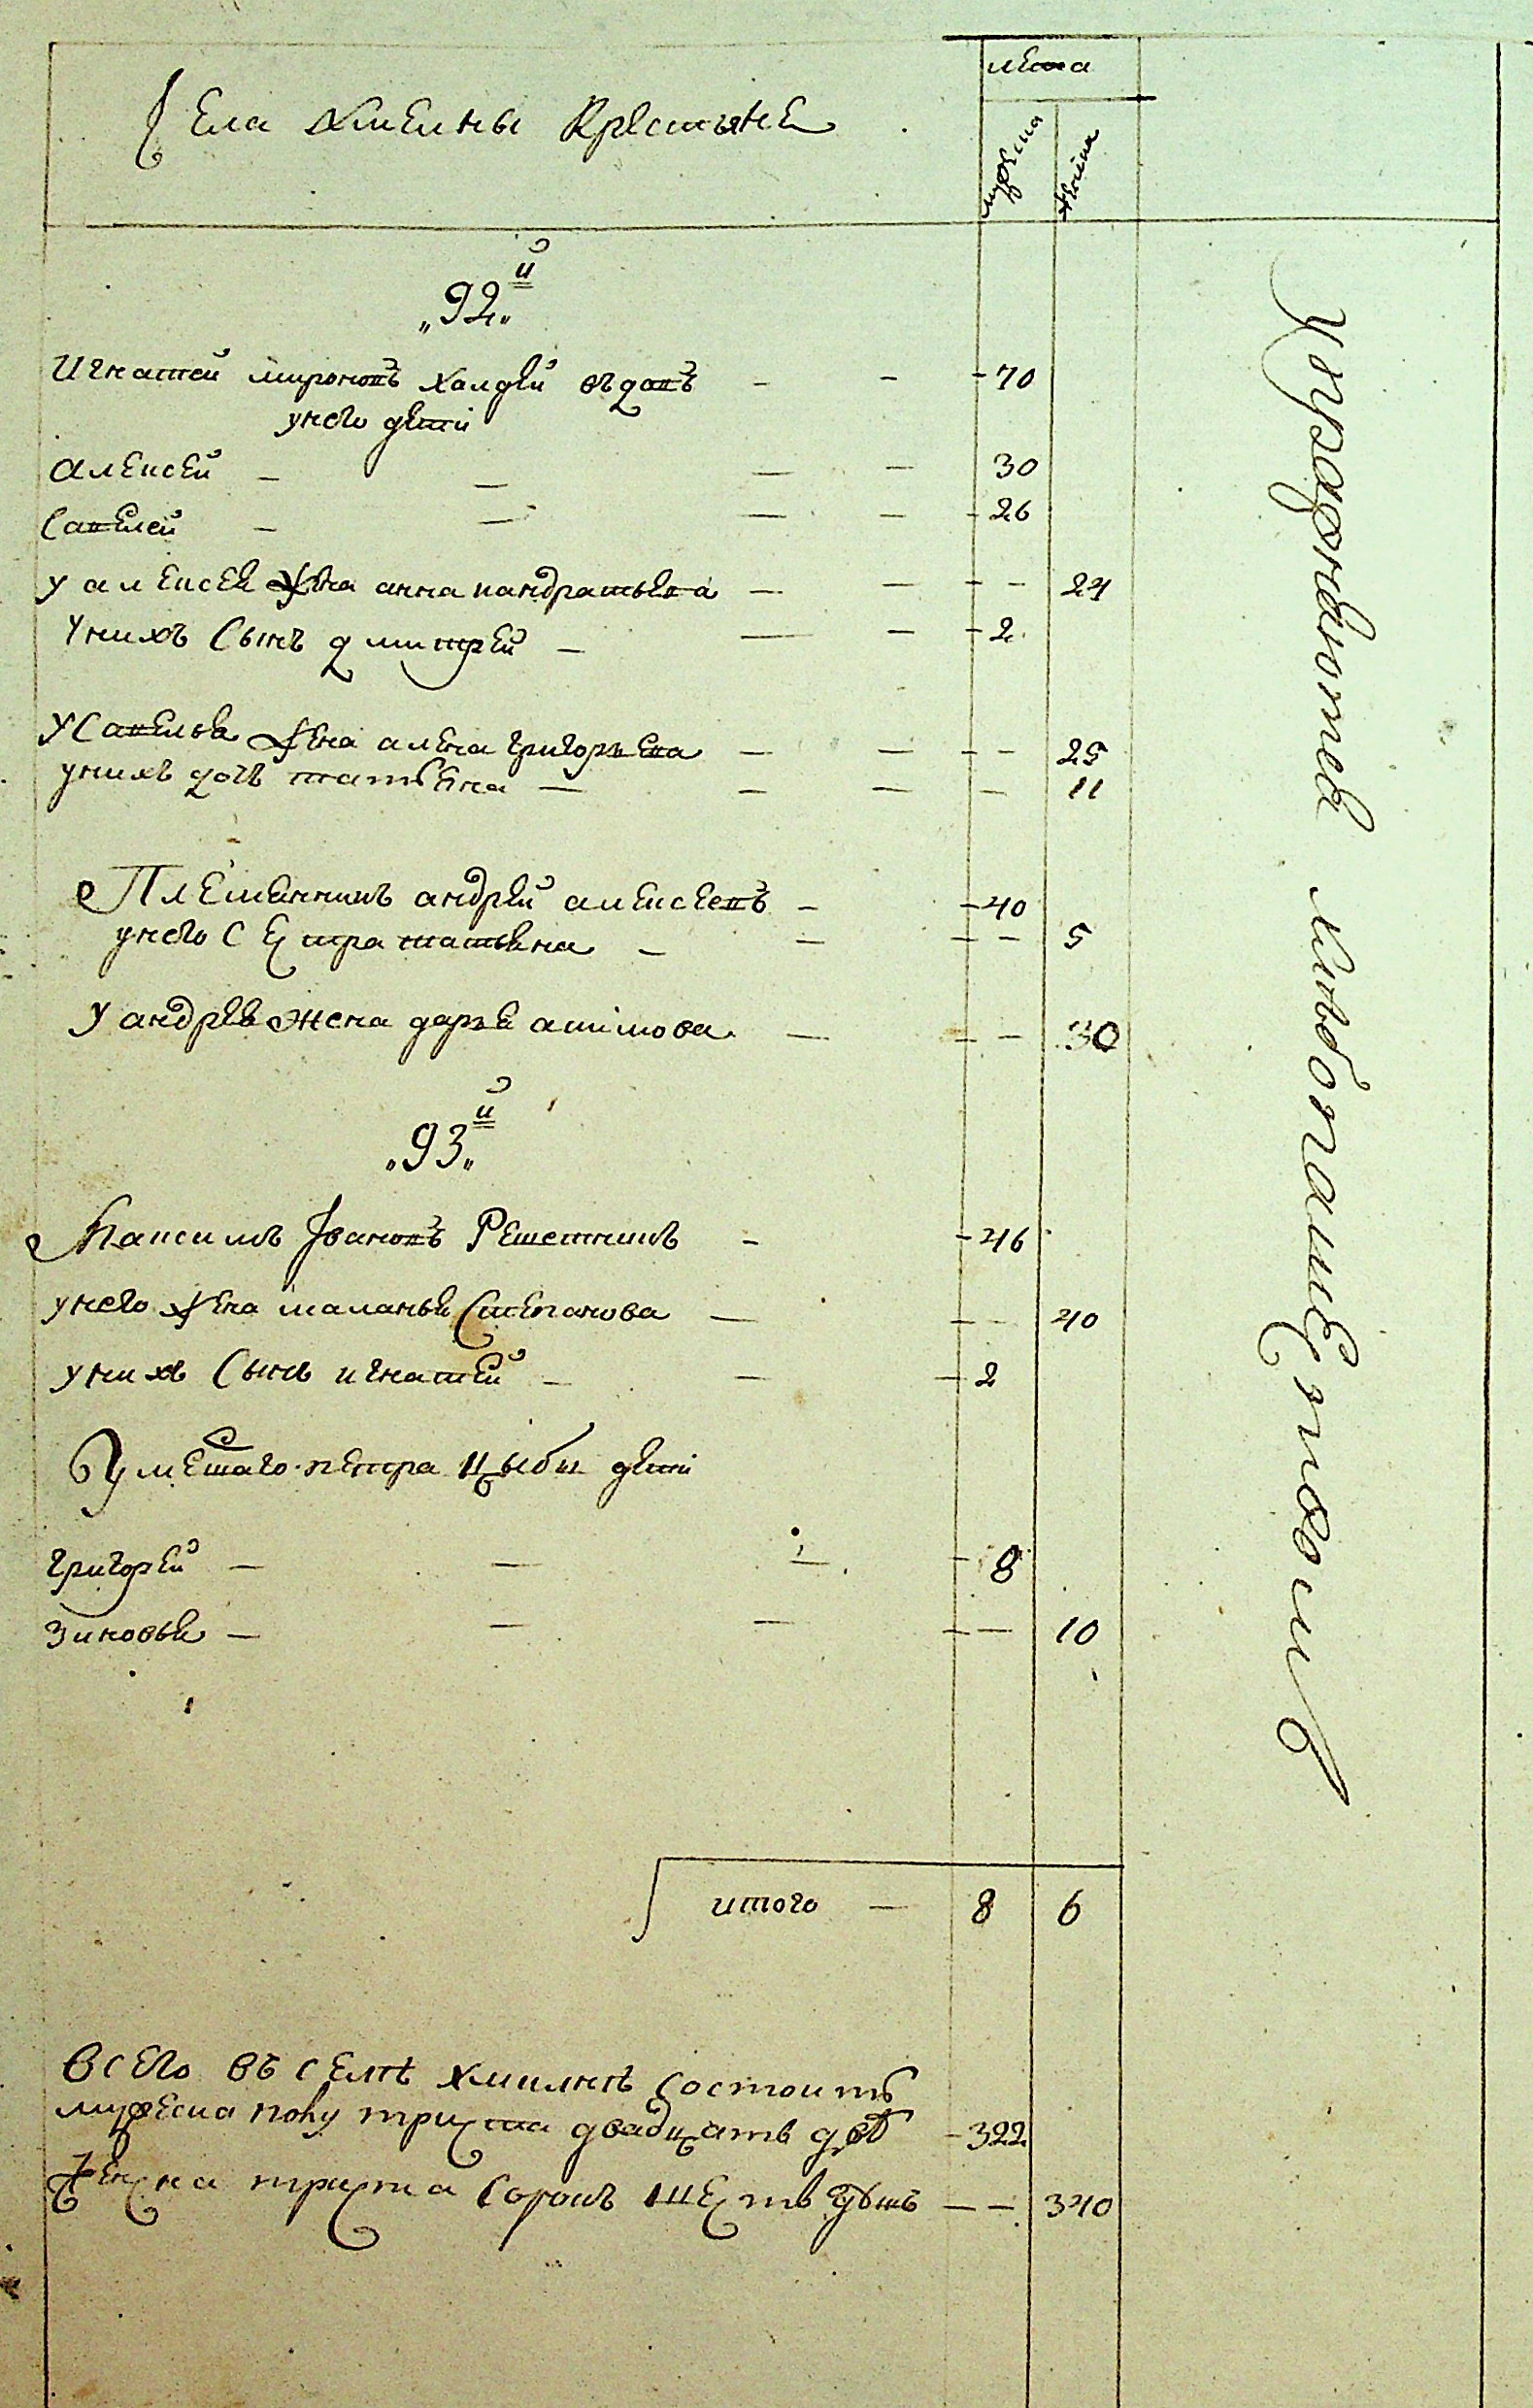 Села Хмелны крестьяне
лета
мужеска
женска
„92„й
Игнатей мироновъ халдей вдовъ - - - 70
у него дети
алексей - - - - 30
Савелей - - - - - 26
у алексея жена анна кандратьева - - - - 24
у нихъ Сынъ дмитрей - - - - 2
у Савелья жена алена григорьева - - - - 25
у нихъ дочь татьяна - - - - 11
Племянникъ андрей алексеевъ - - 40
у него Сестра татьяна - - - - 5
у андрея жена дарья 30
„93„й
Максимъ Ивановъ Решетникъ - - 46
у него жена маланья Степанова - - - 40
у нихъ Сынъ игнатей - - - 2
Умершаго петра цыбы дети
григорей - - - - 8
Зиновья - - - - - 10
итого - 8 6
Всего въ селе хмилне Состоитъ
мужеска полу триста двадцать две - 322
женска триста Сорокъ шесть душъ - - 340